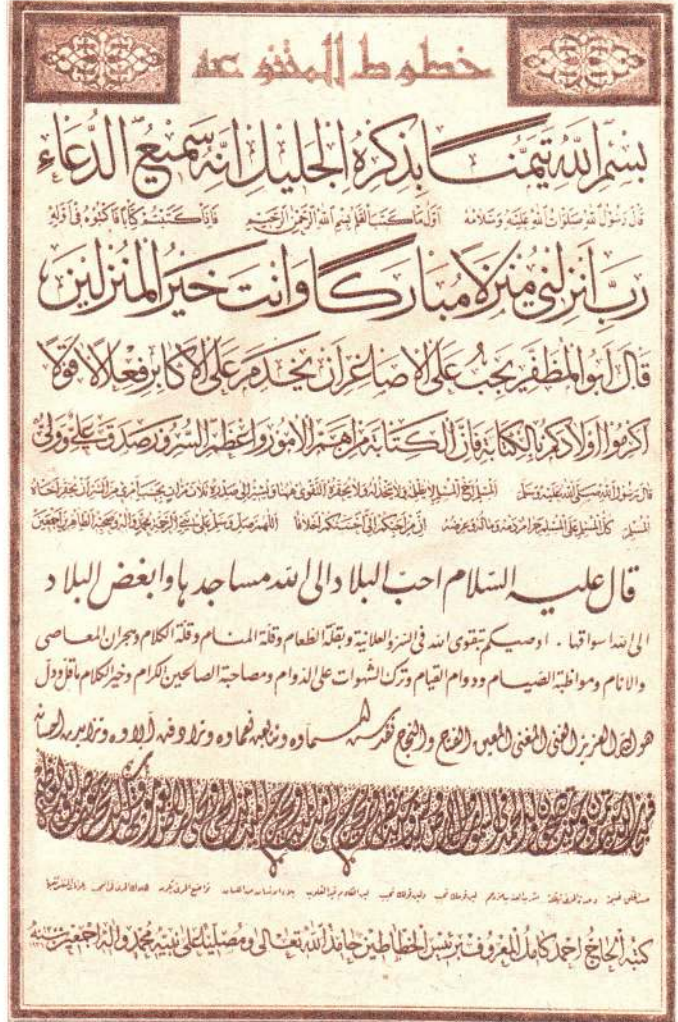 خطوط المتنوعه
بسم الله تيمنا بذكره الجليل انه سميع الدعاء
قال رسول الله صلوات الله عليه وسلامه اول ما كتب القلم بسم الله الرحمن الرحيم فاذا كتبتم كتابا فاكتبوه في اوله
رب انزلني منزلا مباركا وانت خير المنزلين
قال ابو المظفر يجب على الاصاغر ان يخدم على الاكابر فعلا لا قولا
اكرموا اولادكم بالكتابة فان الكتابة من اهم الامور واعظم السرور صدق علي ولي
قال رسول الله صلى الله عليه وسلم المسلم اخ المسلم لا يظلمه ولا يخذله ولا يحقره التقوى ههنا ويشير الى صدره ثلاث مرات بحسب امرئ من الشر ان يحقر اخاه
المسلم كل المسلم على المسلم حرام دمه وماله وعرضه ان من احبكم الي احسنكم اخلاقا اللهم صل وسلم على نبي الرحمة محمد واله وصحبه الطاهرين اجمعين
قال عليه السلام احب البلاد الى الله مساجدها وابغض البلاد
الى الله اسواقها . اوصيكم بتقوى الله في السر والعلانية وبقلة الطعام وقلة المنام وقلة الكلام وهجران المعاصي
والاثام ومواظبة الصيام ودوام القيام وترك الشهوات على الدوام ومصاحبة الصالحين الكرام وخير الكلام ما قل ودل
هو الله العزيز الغني المغني المعين الفتاح والنجاح
فسبحان الله حين تمسون وحين تصبحون وله الحمد في السموات والارض وعشيا وحين تظهرون يخرج الحي من الميت ويخرج الميت من الحي ويحيي الارض بعد موتها وكذلك تخرجون
كتبه الحاج احمد كامل المعروف برئيس الخطاطين حامدا لله تعالى ومصليا على نبيه محمد واله اجمعين